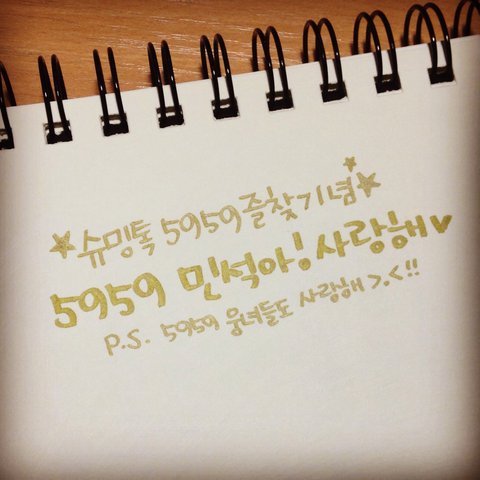 ★슈밍톡 5959 졸찾기념★
5959 민석아! 사랑해♥
P.S. 5959 웅녀들도 사랑해 >.<!!